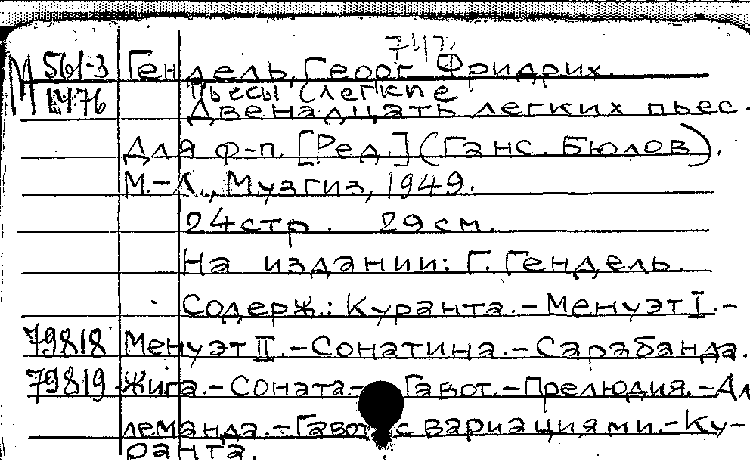 747.
М 561-3 Гендель, Георг Фридрих.
1476 Пьесы (Легкие
Двенадцать легких пьес.
Для ф-п. [Ред.] (Ганс Бюлов).
М.-Л., Музгиз, 1949.
24 стр. 29 см.
На издании: Г. Гендель.
Содерж.: Куранта.-Менуэт I.-
79818 Менуэт II.-Сонатина.-Сарабанда.
79819 Жига.-Соната- Гавот.-Прелюдия.-Ал
леманда.-Гавот с вариациями.-Ку-
ранта.